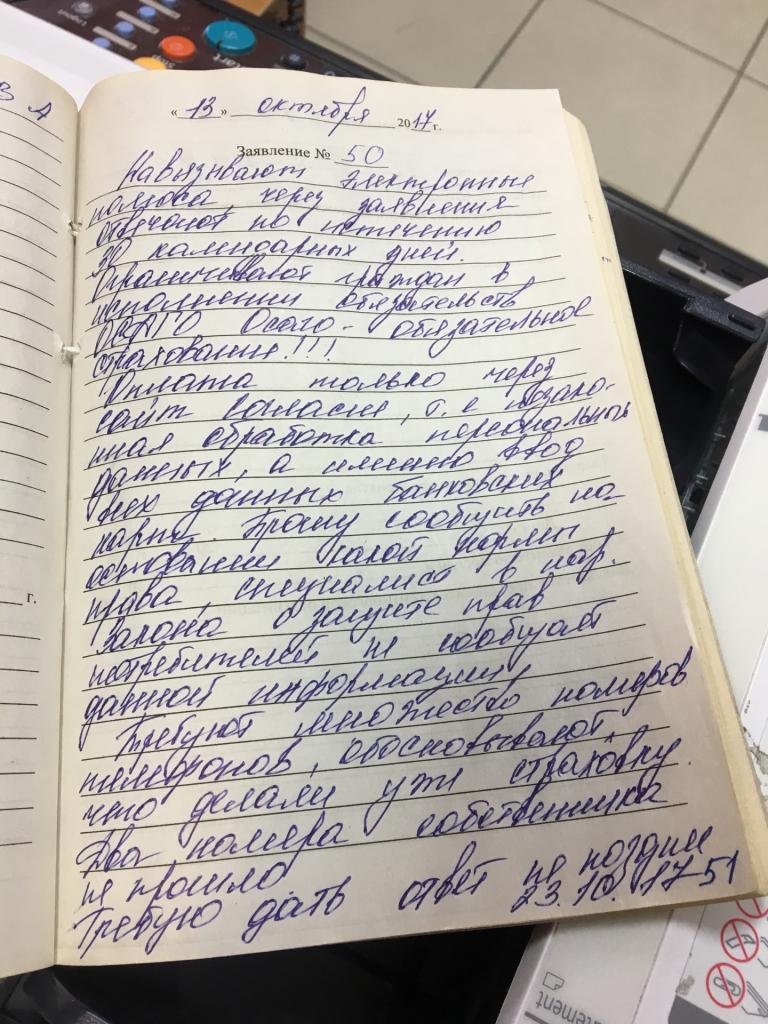 В А
г.
« 13 » октября 2017 г.
Заявление № 50
Навязывают электронные
полюса, через заявления
отвечают по истечению
30 календарных дней.
Ограничевают граждан в
исполнении обязательств
ОСАГО Осаго - обязательное
страхование!!!
Оплата только через
сайт Согласие, т.е
ная обработка персональных
данных, а именно ввод
всех данных банковских
карт. Прошу сообщить на
основании какой нормы
права, специалист в нар.
Закона о защите прав
потребителей не сообщает
данной информации,
Требуют множество номеров
телефонов, обосновывают,
что делали уже страховку.
Два номера собственника
не прошло
Требую дать ответ не поздние
23.10. 17
Start
Stop
Logout
atement